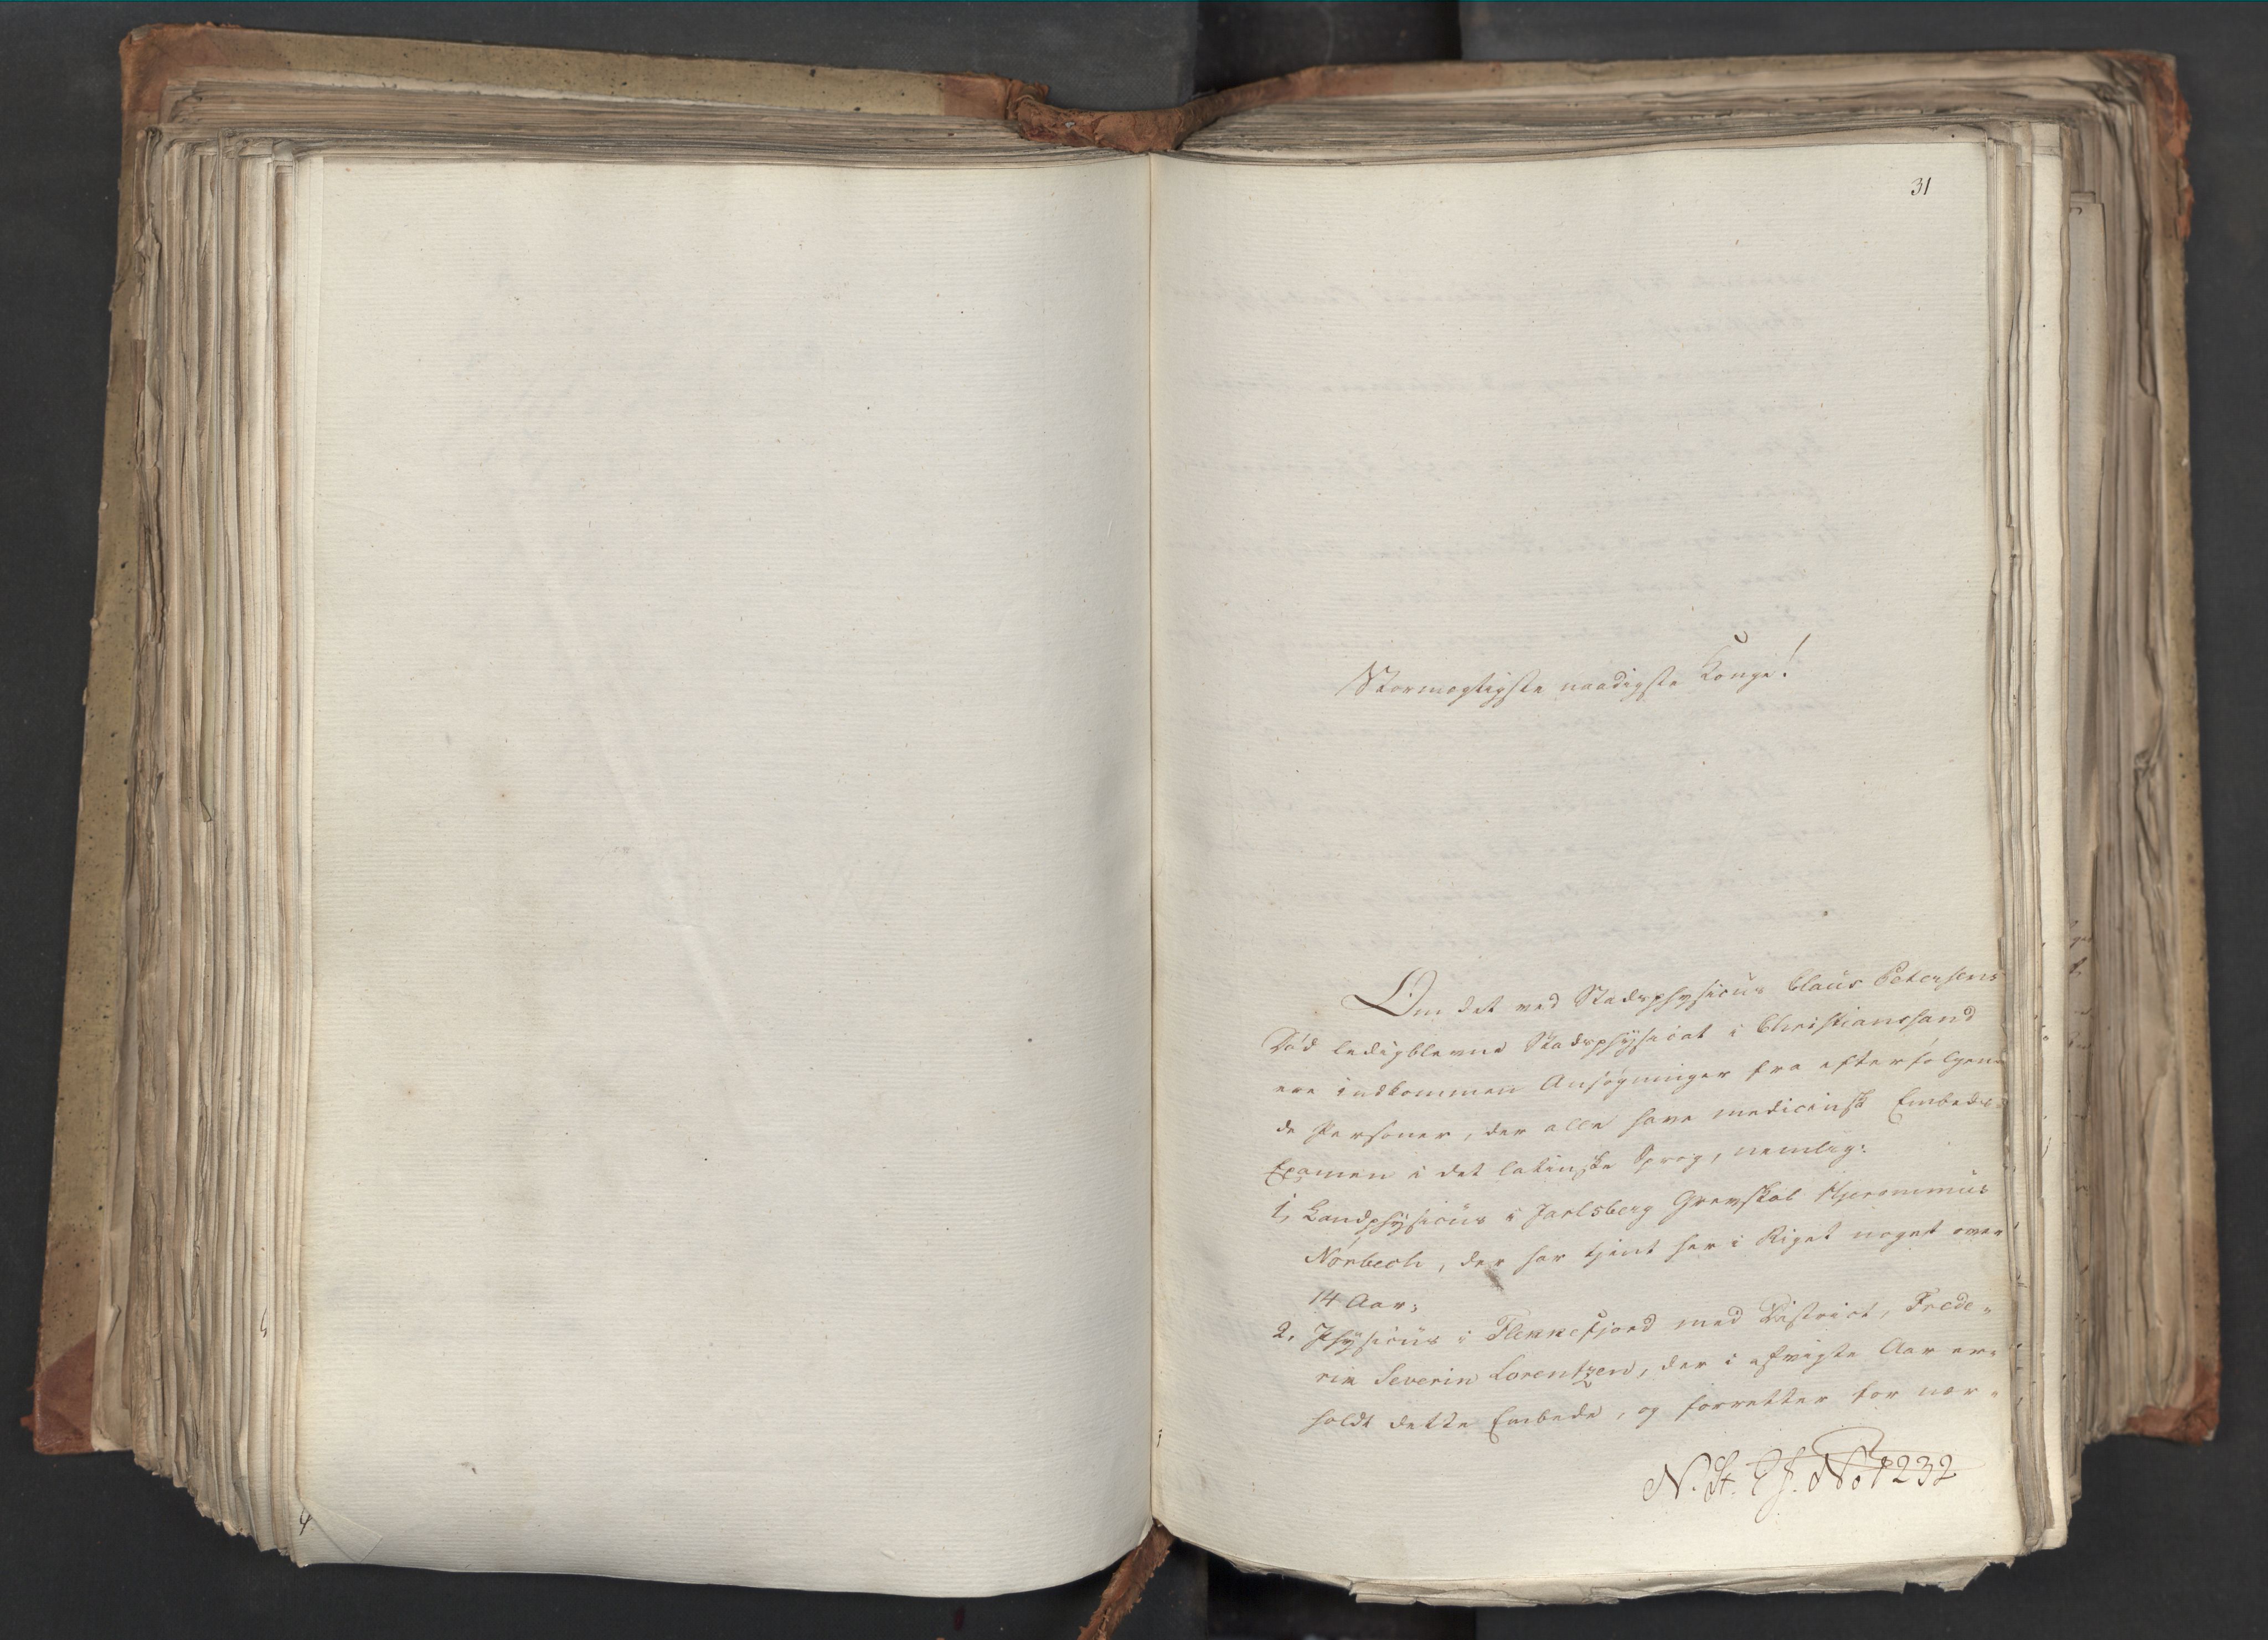 31
Stormægtigste naadigste Konge!
Om det ved Stadsphysicus Claus Petersens
Død ledigblevne Stadsphysicat i Christianssand
ere indkommen Ansøgninger fra efterfølgen-
de Personer, der alle have medicinsk Embeds-
Examen i det latinske Sprog, nemlig:
1, Landphysicus i Jarlsberg Grevskab Hjeronimus
Nørbech, der har tjent her i Riget noget over
14 Aar;
2, Physicus i Flekkefjord med District, Frede-
rik Severin Lorentzen, der i afvigte Aar er-
holdt dette Embede, og forretter for nær-
N. St. No 1232